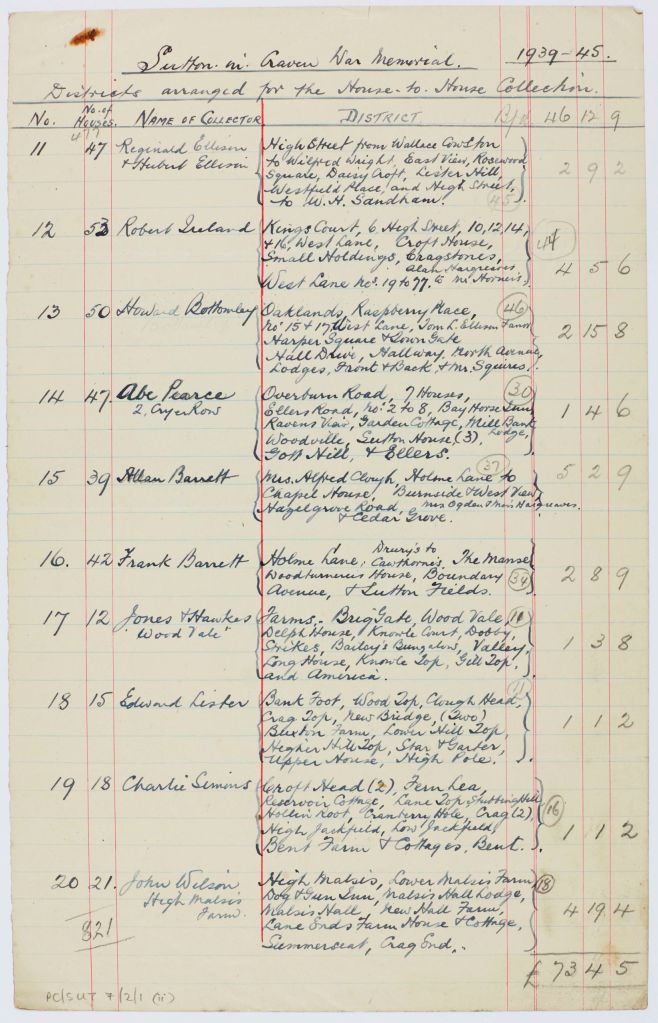 Sutton-in-Craven War Memorial. 1939-45.
Districts arranged for the House-to-House Collection.
No. No. of Houses. NAME OF COLLECTOR DISTRICT. B/fd 46 12 9
477
11 47 Reginald Ellison & Hubert Ellison
High Street from Wallace Cowlton
to Wilfred Wright, East View, Rosewood
Square, Daisy Croft, Lester Hill,
Westfield Place, and High Street,
to W. H. Sandham. (45)
2 9 2
12 53 Robert Ireland
Kings Court, 6 High Street, 10, 12, 14,
& 16, West Lane, Croft House,
Small Holdings, Cragstones,
Alan Hargreaves
West Lane Nos. 19 to 77. to Mr Horner's.
(44)
4 5 6
13 50 Howard Bottomley
Oaklands, Raspberry Place, (46)
No. 15 & 17 West Lane, Tom L. Ellison Farm
Harper Square & Town Gate
Hall Drive, Hallway, North Avenue,
Lodges, Front & Back, & Mr. Squires.
2 15 8
14 47. Abe Pearce
2, Cryer Row
Overburn Road, 7 Houses, (30)
Ellers Road, No. 2 to 8, Bay Horse Inn
Ravens View, Garden Cottage, Mill Bank
Lodge,
Woodville, Sutton House, (3),
Gott Hill, & Ellers.
1 4 6
15 39 Allan Barrett
(37)
Mrs. Alfred Clough, Holme Lane to
Chapel House, Burnside & West View
Hazelgrove Road, Mrs Ogden & Miss Hargreaves.
& Cedar Grove.
5 2 9
16. 42 Frank Barrett
Holme Lane, Drury's to Cawthorne's, The Manse
Woodturners House, Boundary
Avenue, & Sutton Fields. (34)
2 8 9
17 12 Jones & Hawkes
"Wood Vale"
Farms. Brig Gate, Wood Vale, (11)
Delph House, Knowle Court, Dobby,
Stikes, Bailey's Bungalow, Valley,
Long House, Knowle Top, Gill Top,
and America.
1 3 8
18 15 Edward Lister
(11)
Bank Foot, Wood Top, Clough Head,
Crag Top, New Bridge, (Two)
Buxton Farm, Lower Hill Top,
Higher Hill Top, Star & Garter,
Upper House, High Pole.
1 1 2
19 18 Charlie Simms
Croft Head (2), Fern Lea,
Reservoir Cottage, Lane Top, Stubbing Hill
Hollin Root, Cranberry Hole, Crag (2),
High Jackfield, Low Jackfield,
Bent Farm & Cottages, Bent.
(16)
1 1 2
20 21. John Wilson
High Malsis
Farm.
High Malsis, Lower Malsis Farm
Dog & Gun Inn, Malsis Hall Lodge,
Malsis Hall, New Hall Farm,
Lane Ends Farm House & Cottage,
Summerseat, Crag End.
(18)
4 19 4
821
£ 73 4 5
PC/SUT 7/2/1 (ii)